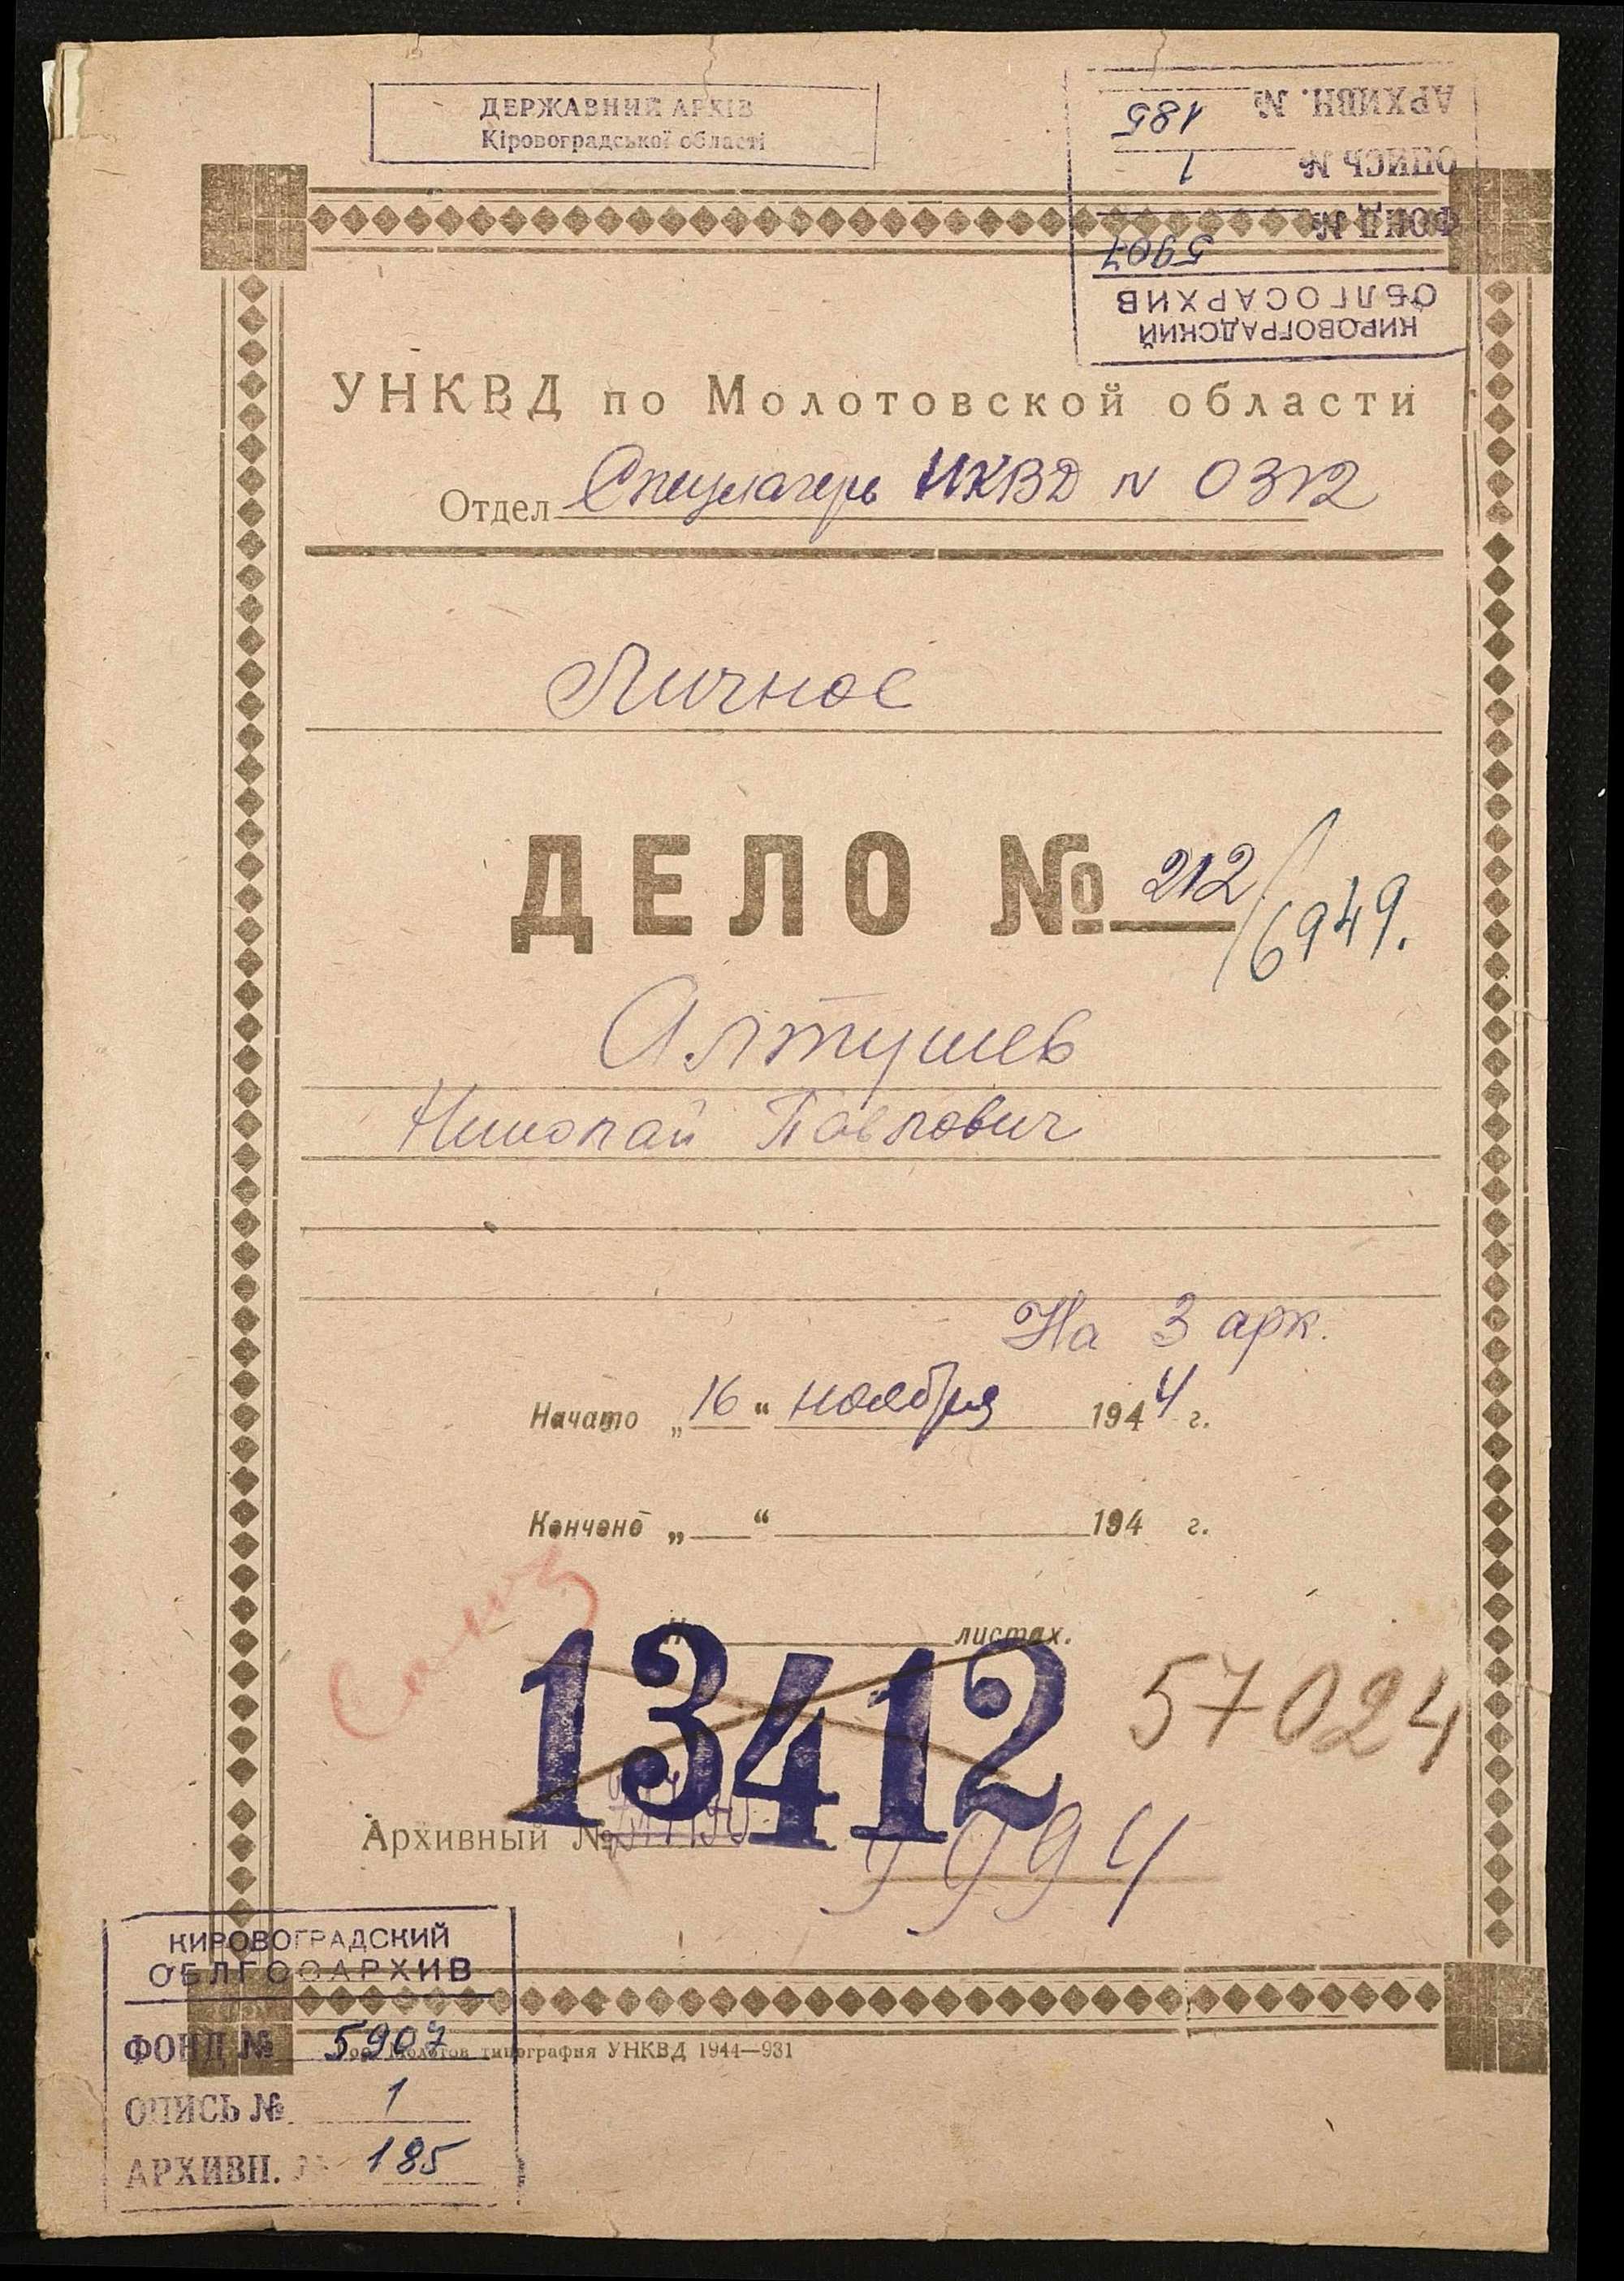 ДЕРЖАВНИЙ АРХІВ
Кіровоградської області
КИРОВОГРАДСКИЙ
ОБЛГОСАРХИВ
ФОНД № 5907
ОПИСЬ № 1
АРХИВН. № 185
УНКВД по Молотовской области
Отдел Спецлагерь НКВД N 0312
Личное
ДЕЛО № 212/6949.
Алтушев
Николай Павлович
На 3 арк.
Начато „16“ ноября 1944 г.
Кончено „ “ 194 г.
листах.
13412
57024
Архивный №
9994
КИРОВОГРАДСКИЙ
ОБЛГОСАРХИВ
ФОНД № 5907
типография УНКВД 1944—931
ОПИСЬ № 1
АРХИВН. № 185